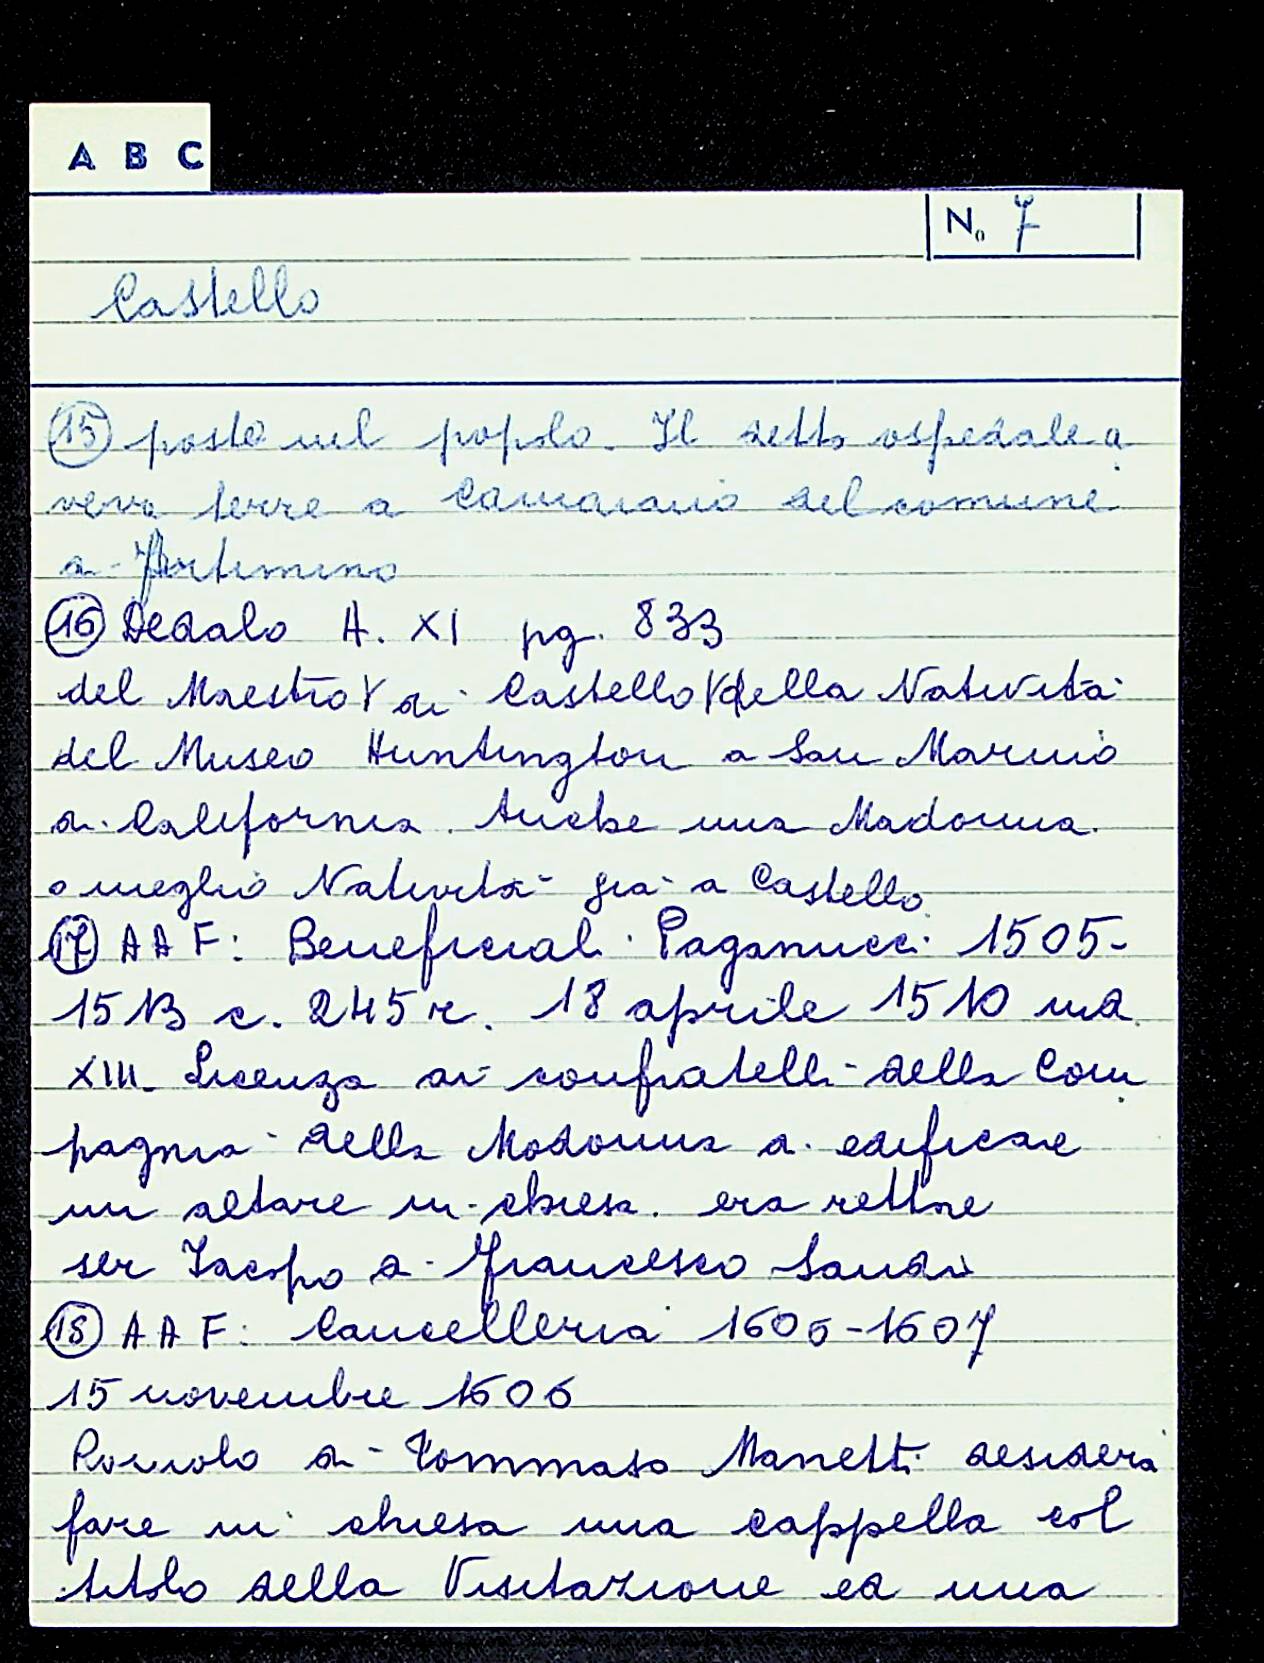 A B C
No 7
Castello
(15) posto nel popolo. Il detto ospedale a
veva terre a Camaiano del comune
di Artimino
(16) Dedalo A. XI pg. 833
del Maestro di Castello della Natività
del Museo Huntington a San Marino
di California. Anche una Madonna
o meglio Natività già a Castello
(17) A A F: Beneficiali Paganucci 1505-
1513 c. 245 r. 18 aprile 1510 ind
XIII. Licenza ai confratelli della Com
pagnia della Madonna di edificare
un altare in chiesa. era rettore
ser Iacopo di Francesco Sandi
(18) A A F: Cancelleria 1606-1607
15 novembre 1606
di Tommaso Manetti desidera
fare in chiesa una cappella col
titolo della Visitazione ed una